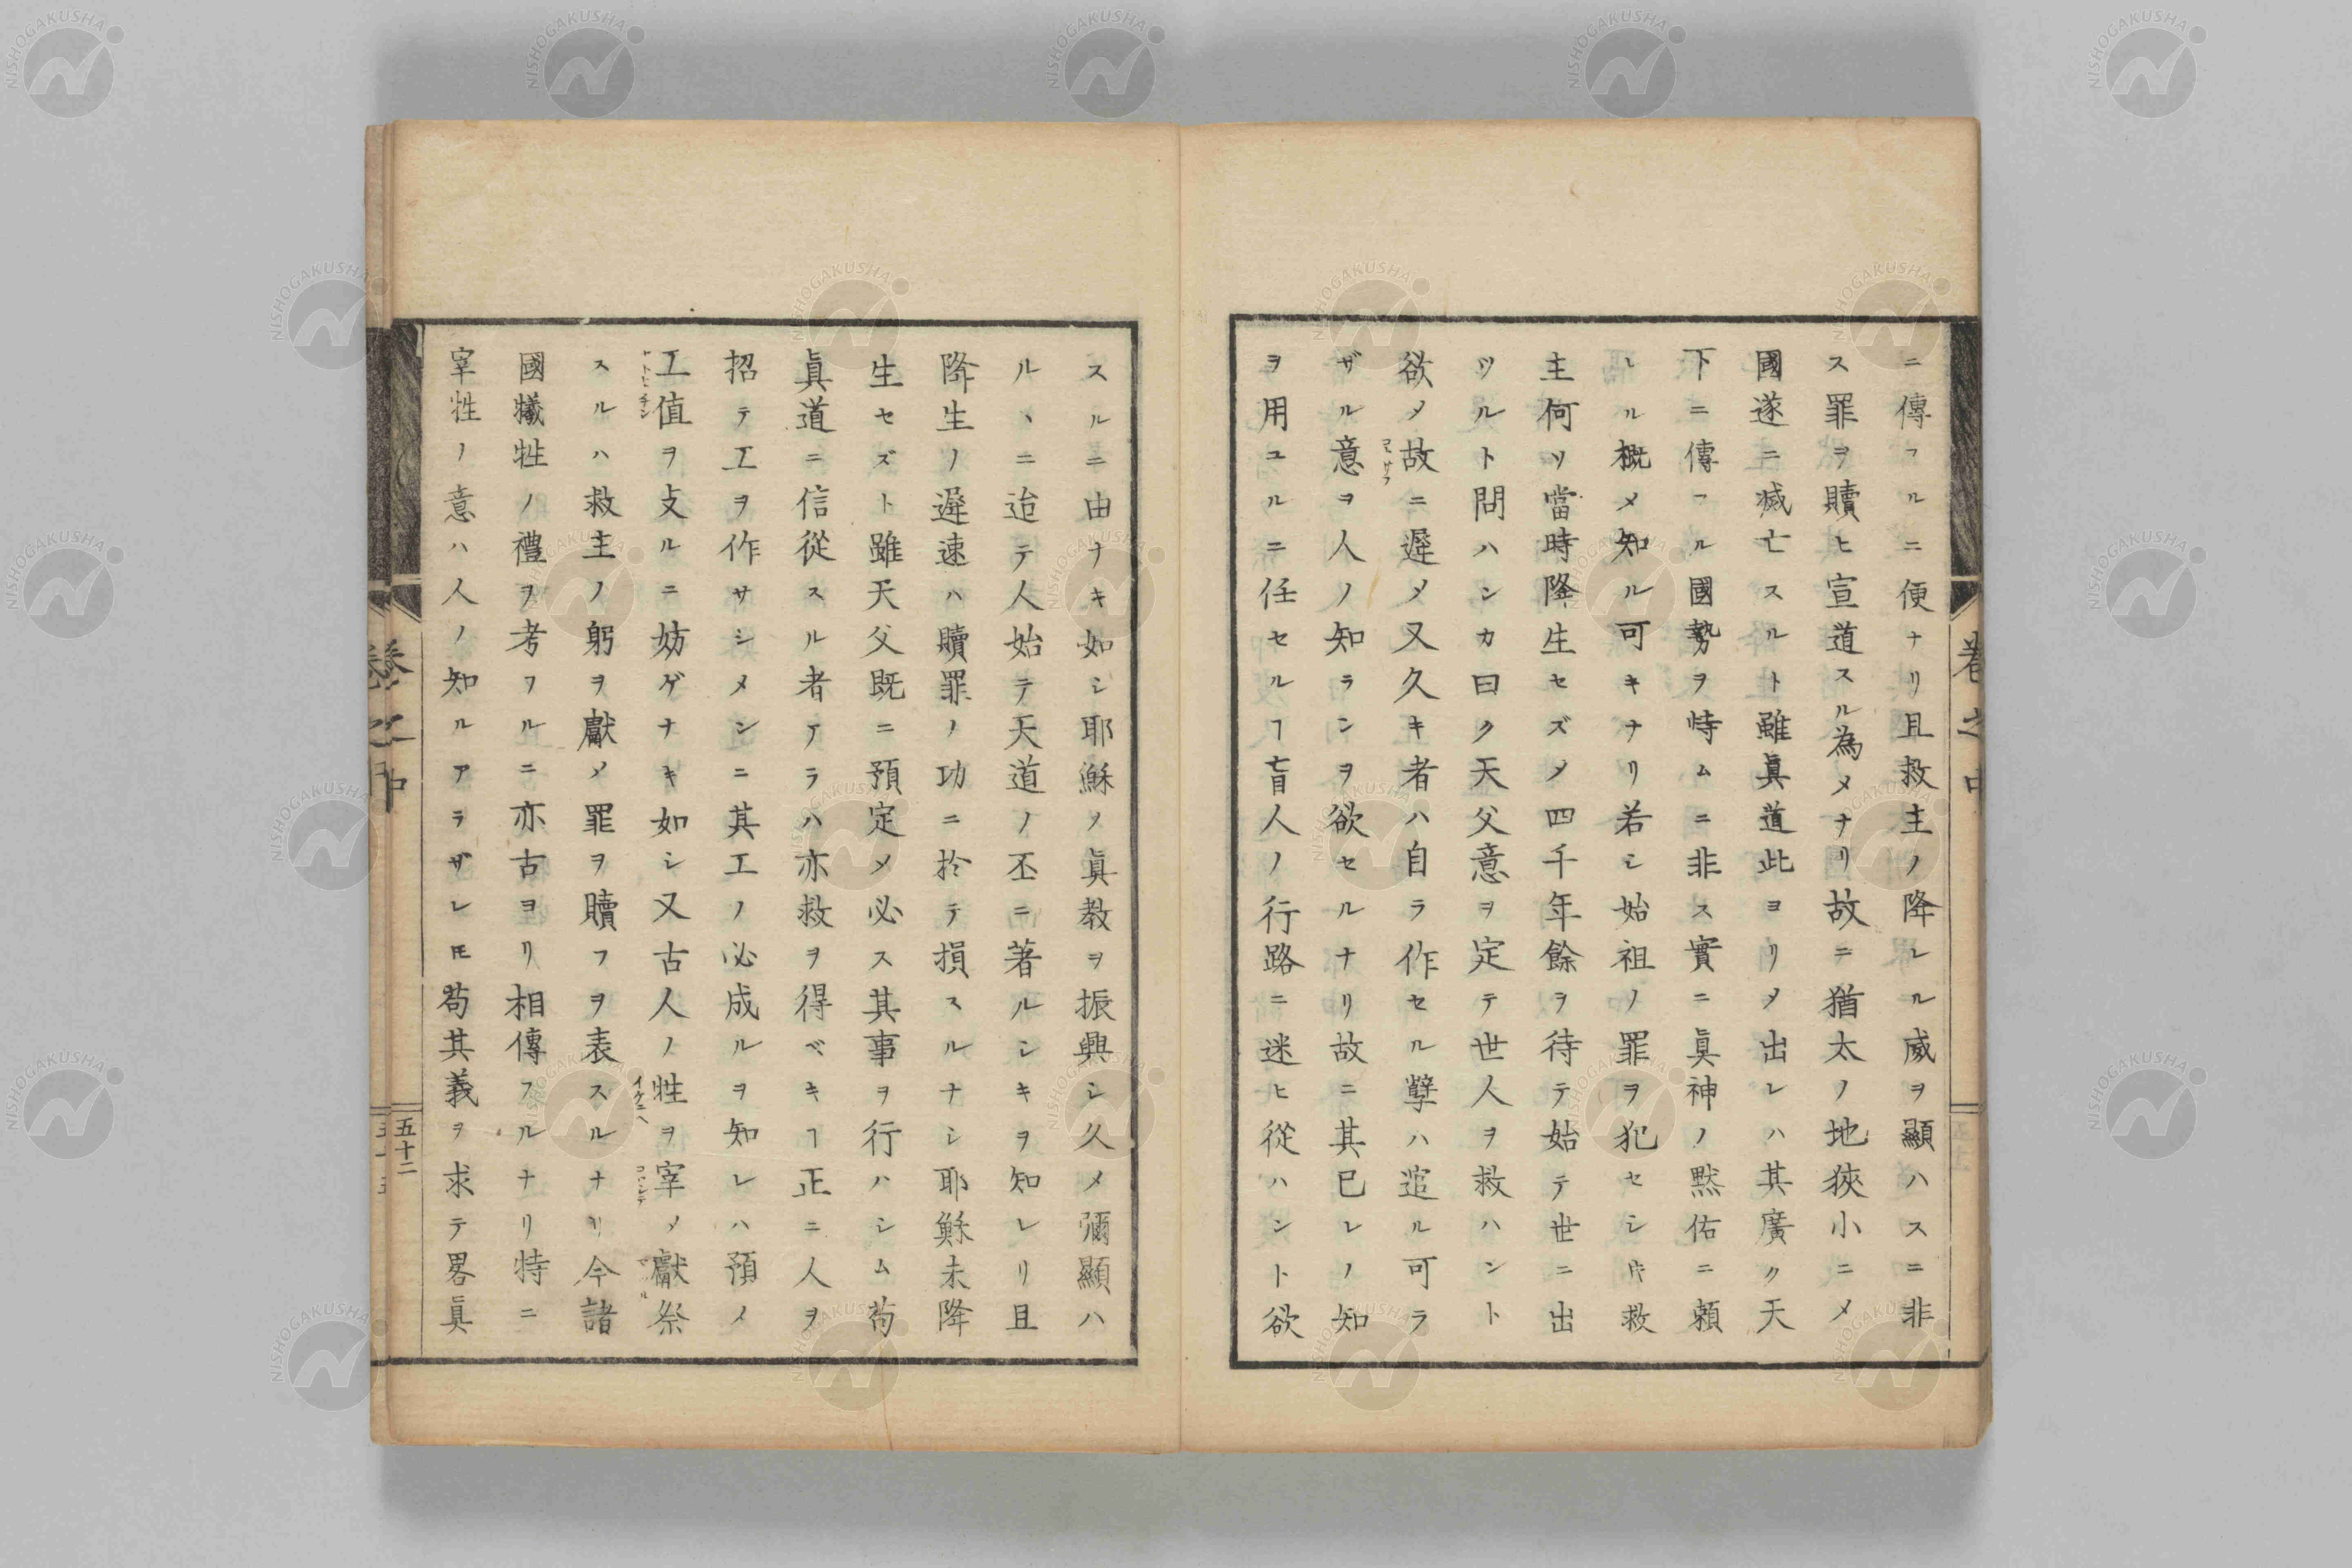 ニ傳フルニ便ナリ且救主ノ降レル威ヲ顯ハスニ非
ス罪ヲ贖ヒ宣道スル為メナリ故ニ猶太ノ地狹小ニメ
國遂ニ滅亡スルト雖眞道此ヨリメ出レハ其廣ク天
下ニ傳フル國勢ヲ恃ムニ非ス實ニ眞神ノ黙佑ニ頼
レル概メ知ル可キナリ若シ始祖ノ罪ヲ犯セシ𪜈救
主何ソ當時降生セズメ四千年餘ヲ待テ始テ世ニ出
ツルト問ハンカ曰ク天父意ヲ定テ世人ヲ救ハント
欲メ故ニ遲メ又久キ者ハ自ラ作セル孽ハ逭ル可ラ
ザル意ヲ人ノ知ランヲ欲セルナリ故ニ其已レノ知
ヲ用ユルニ任セルヿ盲人ノ行路ニ迷ヒ從ハント欲
スルニ由ナキ如シ耶穌ノ眞教ヲ振興シ久メ彌顯ハ
ルヽニ迨テ人始テ天道ノ丕ニ著ルシキヲ知レリ且
降生ノ遲速ハ贖罪ノ功ニ於テ損スルナシ耶穌未降
生セズト雖天父既ニ預定メ必ス其事ヲ行ハシム苟
眞道ニ信從スル者アラハ亦救ヲ得ベキヿ正ニ人ヲ
招テ工ヲ作サシメンニ其工ノ必成ルヲ知レハ預メ
工值ヲ攴ルニ妨ゲナキ如シ又古人ノ牲ヲ宰メ獻祭
スルハ救主ノ躬ヲ獻メ罪ヲ贖フヲ表スルナリ今諸
國犧牲ノ禮ヲ考フルニ亦古ヨリ相傳フルナリ特ニ
宰牲ノ意ハ人ノ知ルアラザレ𪜈苟其義ヲ求テ畧ニ眞
卷之中
五十二